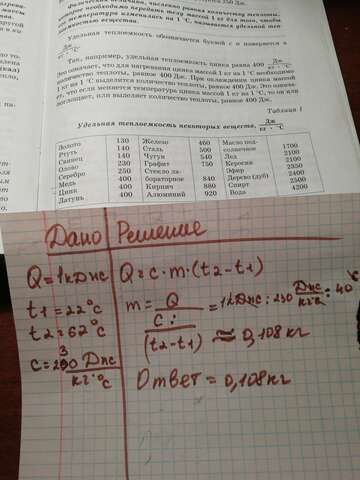 250 Дж.
Физическая величина, численно равная количеству теплоты,
которое необходимо передать телу массой 1 кг для того, чтобы
температура изменилась на 1 °С, называется удельной теп-
вещества.
Удельная теплоемкость обозначается буквой с и измеряется в
Дж
кг · °С
Так, например, удельная теплоемкость цинка равна 400 Дж
кг · °С
Это означает, что для нагревания цинка массой 1 кг на 1 °С необходимо
количество теплоты, равное 400 Дж. При охлаждении цинка массой
1 кг на 1 °С выделится количество теплоты, равное 400 Дж. Это означа-
ет, что если меняется температура цинка массой 1 кг на 1 °С, то он или
поглощает, или выделяет количество теплоты, равное 400 Дж.
Таблица 1
Удельная теплоемкость некоторых веществ, Дж
кг · °С
Золото 130 Железо 460 Масло под-
Ртуть 140 Сталь 500 солнечное 1700
Свинец 140 Чугун 540 Лед 2100
Олово 230 Графит 750 Керосин 2100
Серебро 250 Стекло ла- Эфир 2350
Медь 400 бораторное 840 Дерево (дуб) 2400
Цинк 400 Кирпич 880 Спирт 2500
Латунь 400 Алюминий 920 Вода 4200
Дано Решение
Q=1кДж Q=c·m·(t2-t1)
t1=22°C m=Q =1кДж:230 Дж :40°C
c: кг·°C
t2=62°C (t2-t1) ≈0,108кг
c=230 Дж
кг·°C
Ответ=0,108кг